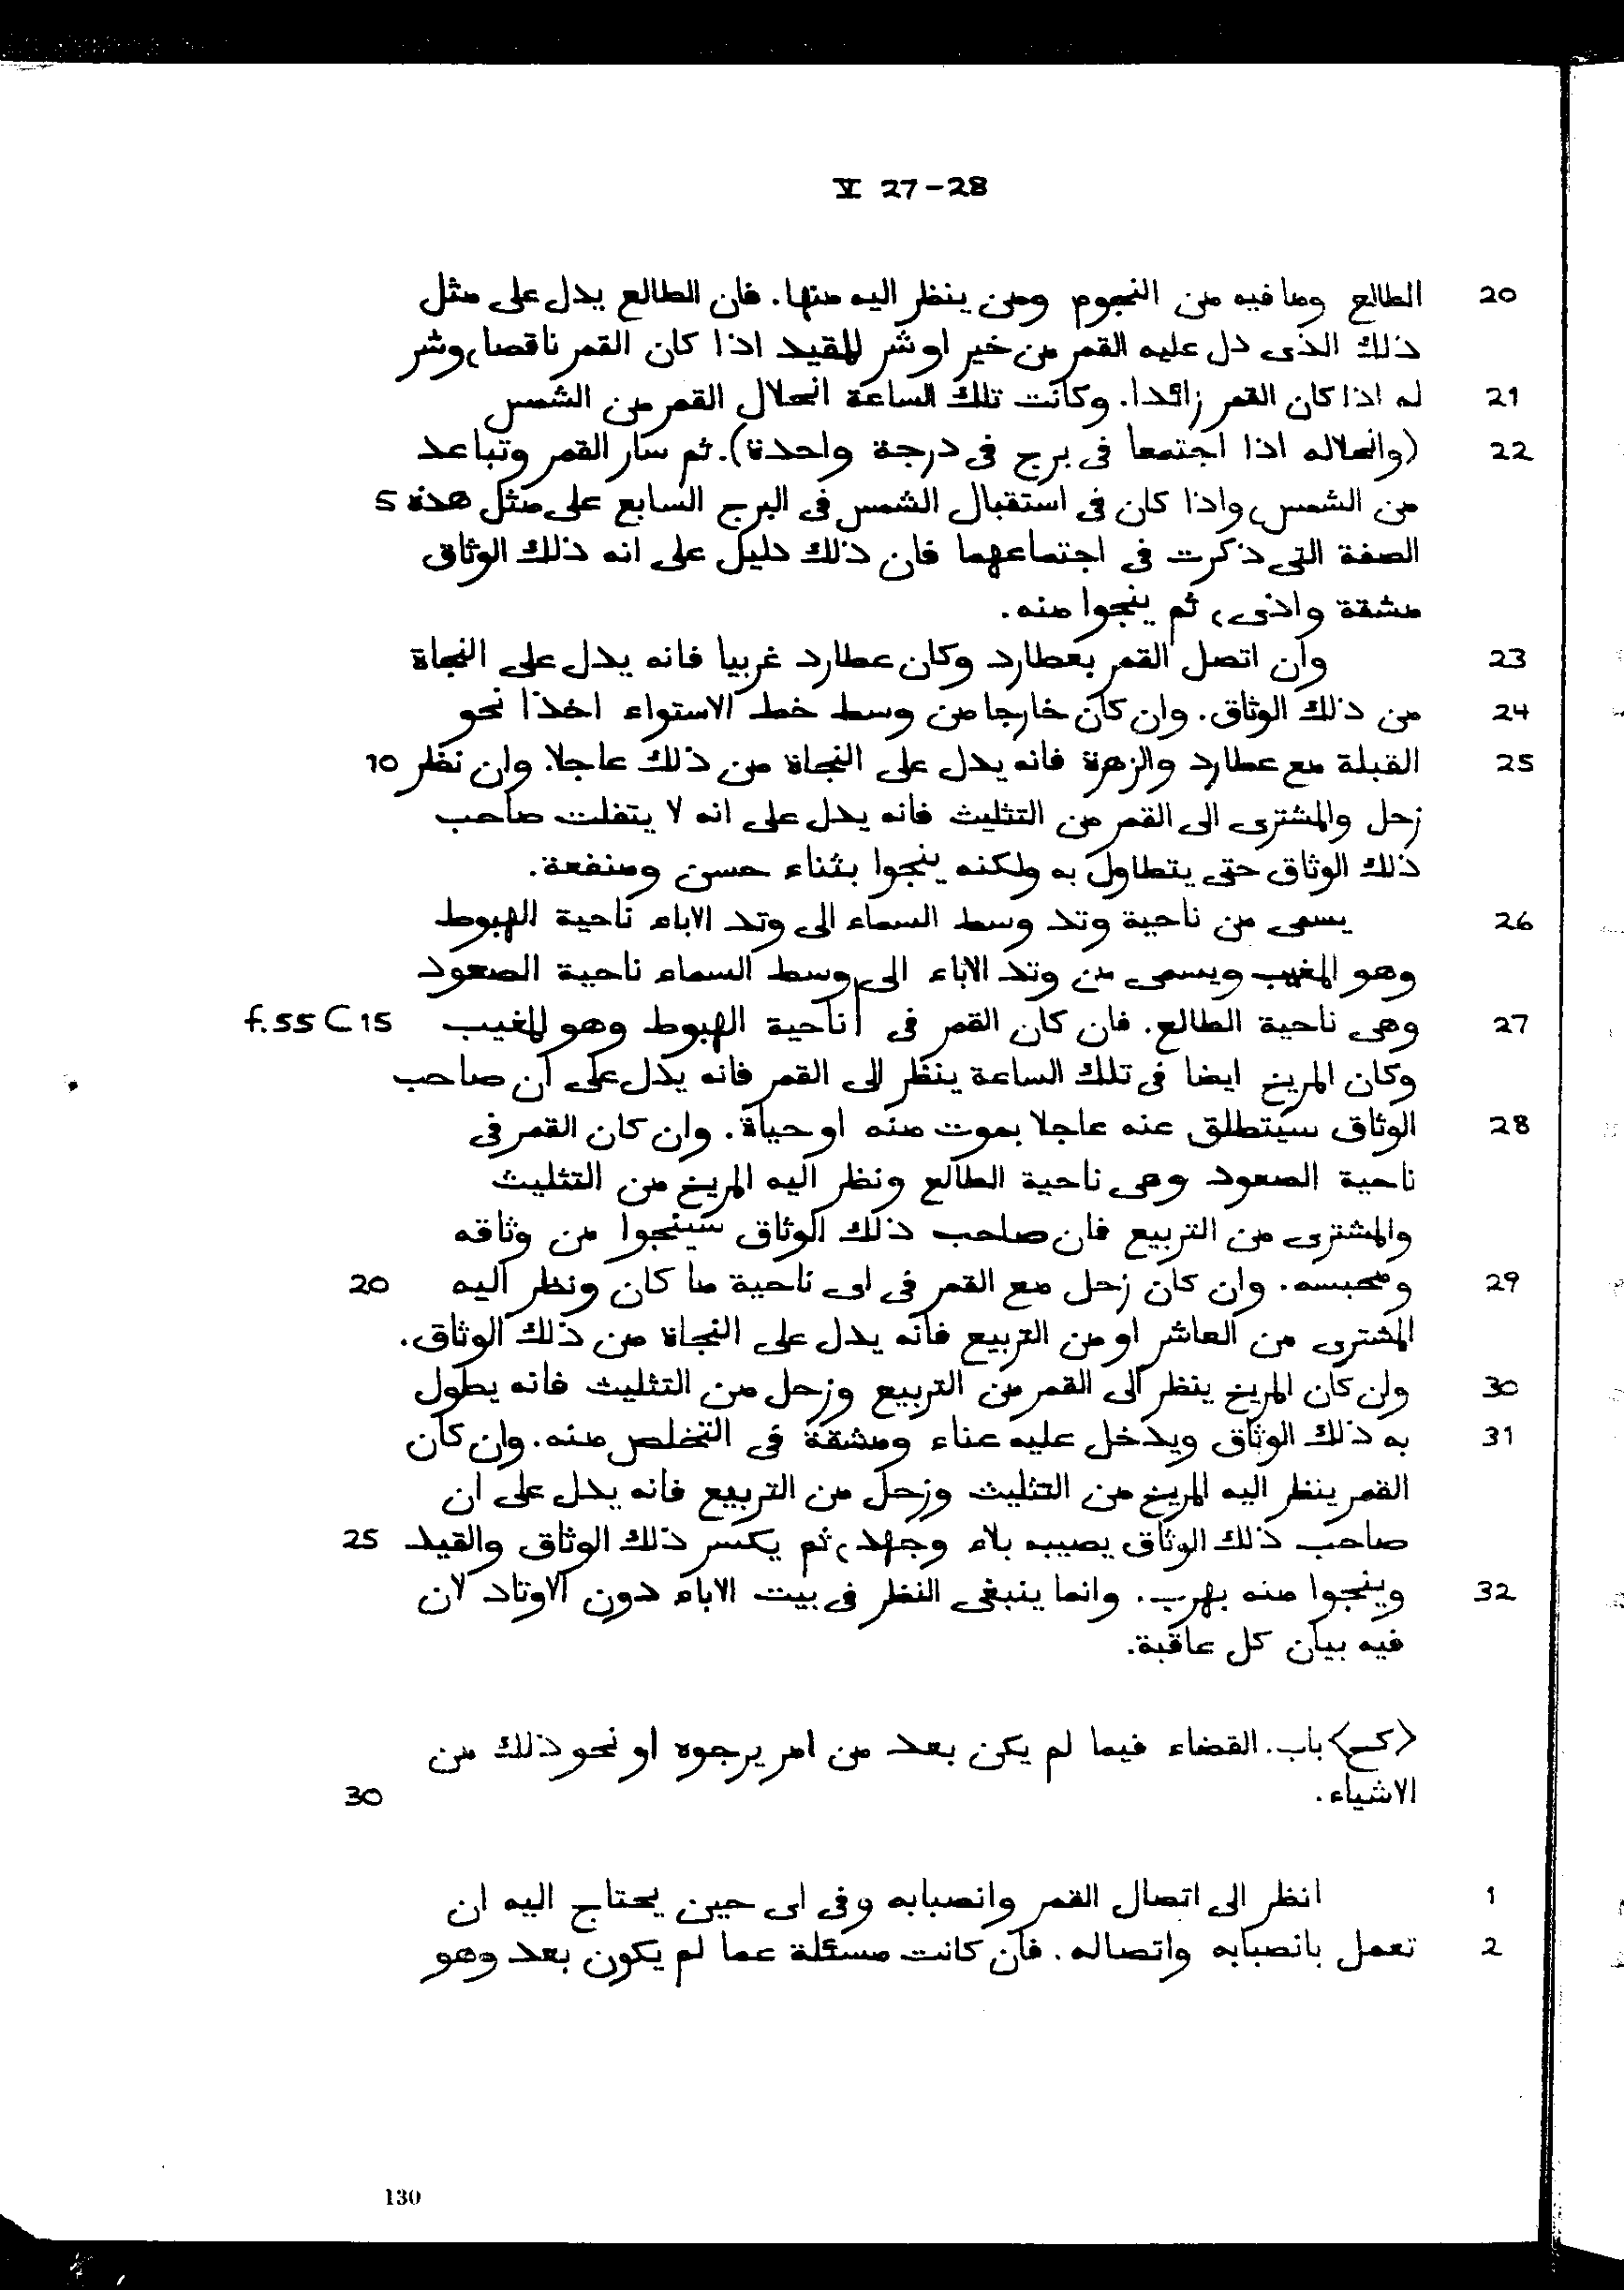 V 27-28
20 الطالع وما فيه من النجوم ومن ينظر اليه منها. فان الطالع يدل على مثل
ذلك الذى دل عليه القمر من خير او شر للمقيد اذا كان القمر ناقصا، وشر
21 له اذا كان القمر زائدا. وكانت تلك الساعة انحلال القمر من الشمس
22 (وانحلاله اذا اجتمعا فى برج فى درجة واحدة). ثم سار القمر وتباعد
من الشمس، واذا كان فى استقبال الشمس فى البرج السابع على مثل هذه 5
الصفة التى ذكرت فى اجتماعهما فان ذلك دليل على انه ذلك الوثاق
مشقة واذى، ثم ينجوا منه.
23 وان اتصل القمر بعطارد وكان عطارد غربيا فانه يدل على النجاة
24 من ذلك الوثاق. وان كان خارجا من وسط خط الاستواء اخذا نحو
25 القبلة مع عطارد والزهرة فانه يدل على النجاة من ذلك عاجلا. وان نظر 10
زحل والمشترى الى القمر من التثليث فانه يدل على انه لا يتفلت صاحب
ذلك الوثاق حتى يتطاول به ولكنه ينجوا بثناء حسن ومنفعة.
26 يسمى من ناحية وتد وسط السماء الى وتد الاباء ناحية الهبوط
وهو المغيب ويسمى من وتد الاباء الى وسط السماء ناحية الصعود
27 وهى ناحية الطالع. فان كان القمر فى | ناحية الهبوط وهو للمغيب 15 f.55 C
وكان المريخ ايضا فى تلك الساعة ينظر الى القمر فانه يدل على ان صاحب
28 الوثاق سيتطلق عنه عاجلا بموت منه او حياة. وان كان القمر فى
ناحية الصعود وهى ناحية الطالع ونظر اليه المريخ من التثليث
والمشترى من التربيع فان صاحب ذلك الوثاق سينجوا من وثاقه
29 ومحبسه. وان كان زحل مع القمر فى اى ناحية ما كان ونظر اليه 20
المشترى من العاشر او من التربيع فانه يدل على النجاة من ذلك الوثاق.
30 ولن كان المريخ ينظر الى القمر من التربيع وزحل من التثليث فانه يطول
31 به ذلك الوثاق ويدخل عليه عناء ومشقة فى التخلص منه. وان كان
القمر ينظر اليه المريخ من التثليث وزحل من التربيع فانه يدل على ان
صاحب ذلك الوثاق يصيبه بلاء وجهد، ثم يكسر ذلك الوثاق والقيد 25
32 وينجوا منه بهرب. وانما ينبغى النظر فى بيت الاباء دون الاوتاد لان
فيه بيان كل عاقبة.
<كح> باب. القضاء فيما لم يكن بعد من امر يرجوه او نحو ذلك من
الاشياء. 30
1 انظر الى اتصال القمر وانصبابه وفى اى حين يحتاج اليه ان
2 تعمل بانصبابه واتصاله. فان كانت مسئلة عما لم يكون بعد وهو
130